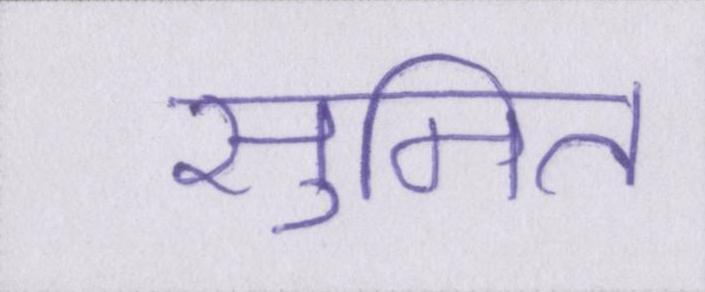 सुमित